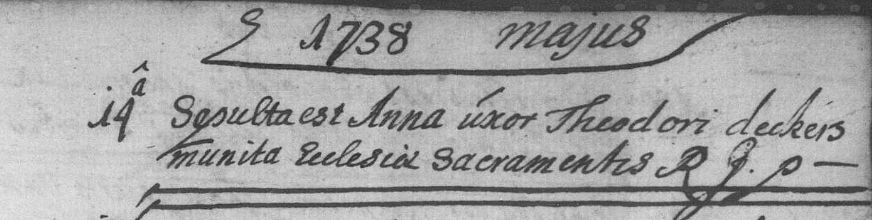 1738 majus
14â Sepulta est Anna uxor Theodori deckers
munita Ecclesiæ Sacramentis R J. p —